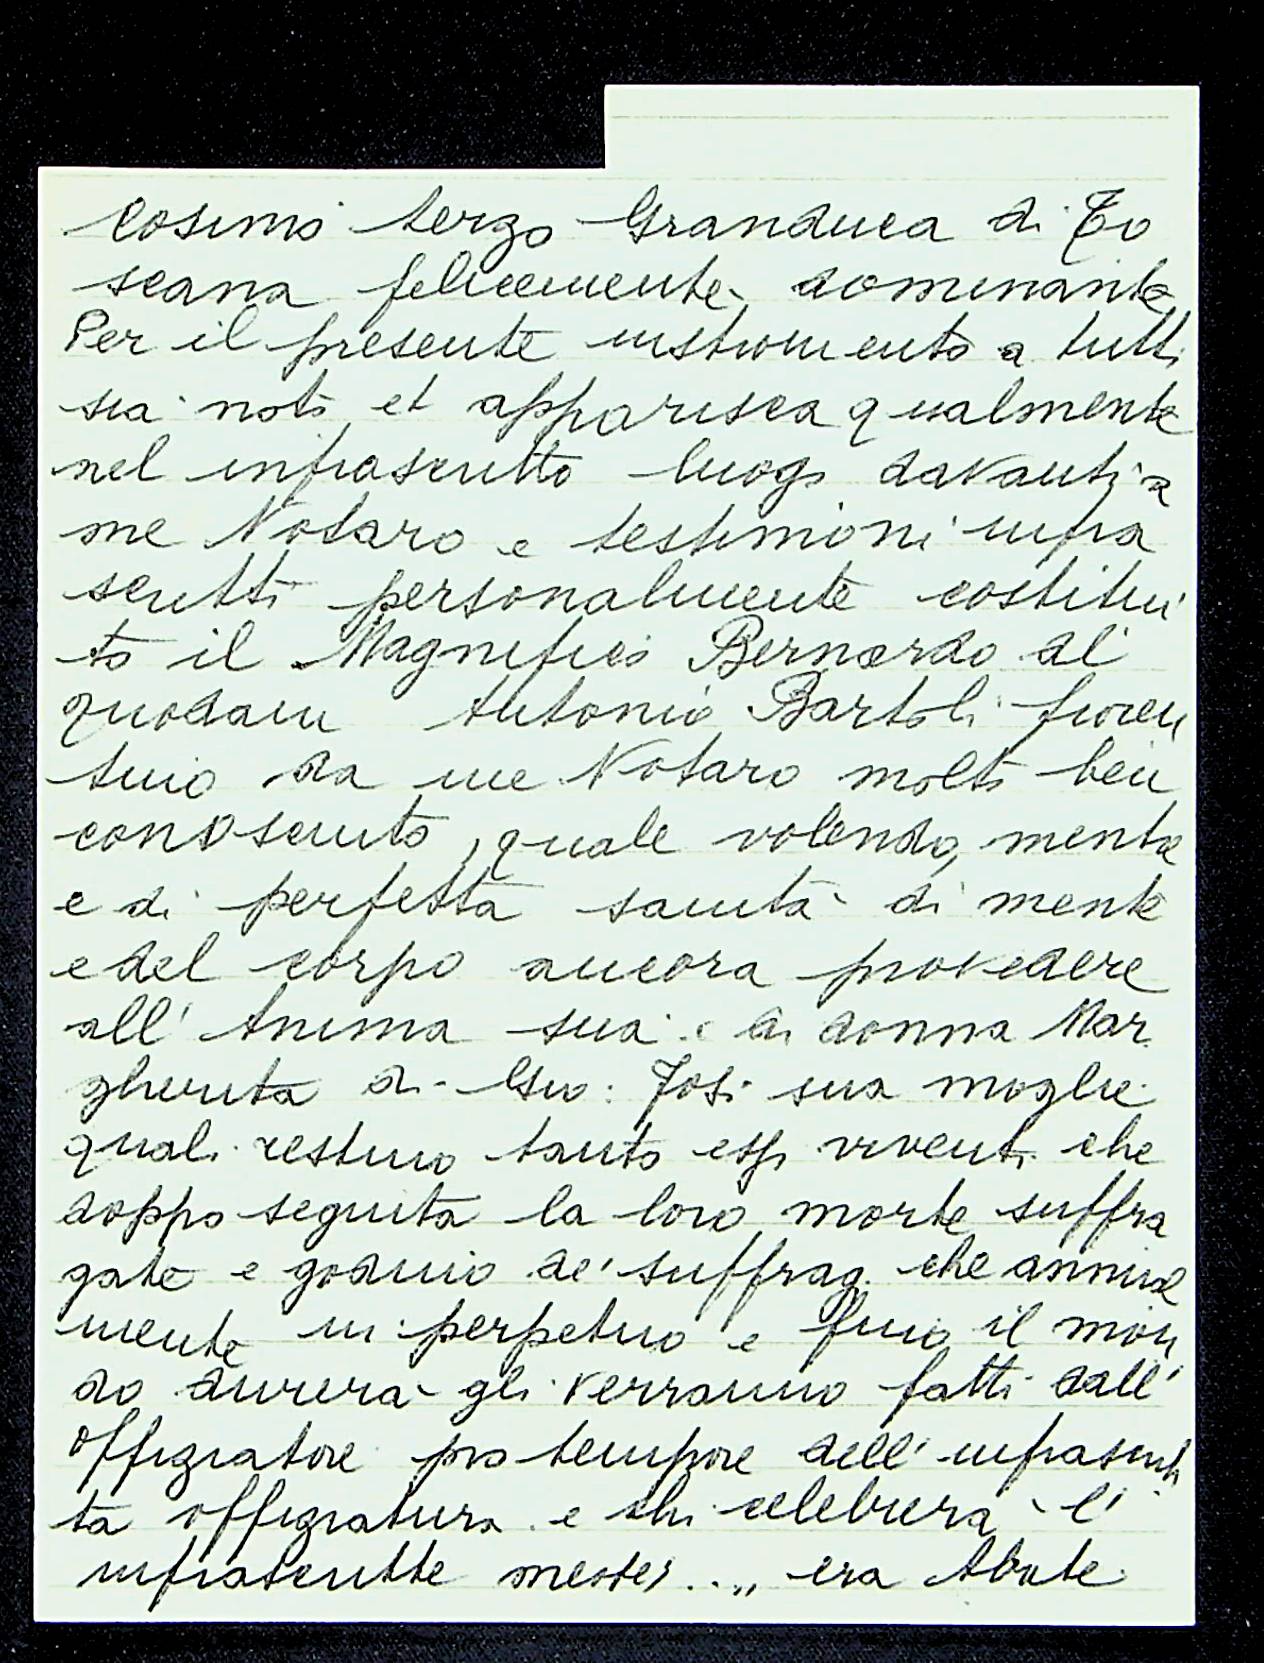 Cosimo terzo Granduca di To
scana felicemente dominante
Per il presente instromento a tutti
sia noto et apparisca qualmente
nel infrascritto luogo davanti a
me Notaro e testimoni infra
scritti personalmente costitui
to il Magnifico Bernardo di
quodam Antonio Bartoli fioren
tino da me Notaro molto ben
conosciuto, quale volendo, mentre
e di perfetta sanità di mente
e del corpo ancora provedere
all' Anima sua e di donna Mar
gherita di Gio: Tosi sua moglie
quali restino tanto essi viventi che
doppo seguita la loro morte suffra
gate e godino de' suffrag. che annual
mente in perpetuo e fino il mon
do durerà gli verranno fatti dall'
offiziatore pro tempore dell' infrascrit
ta offiziatura e chi celebrerà l'
infrascritte messe) ..,, era Abate